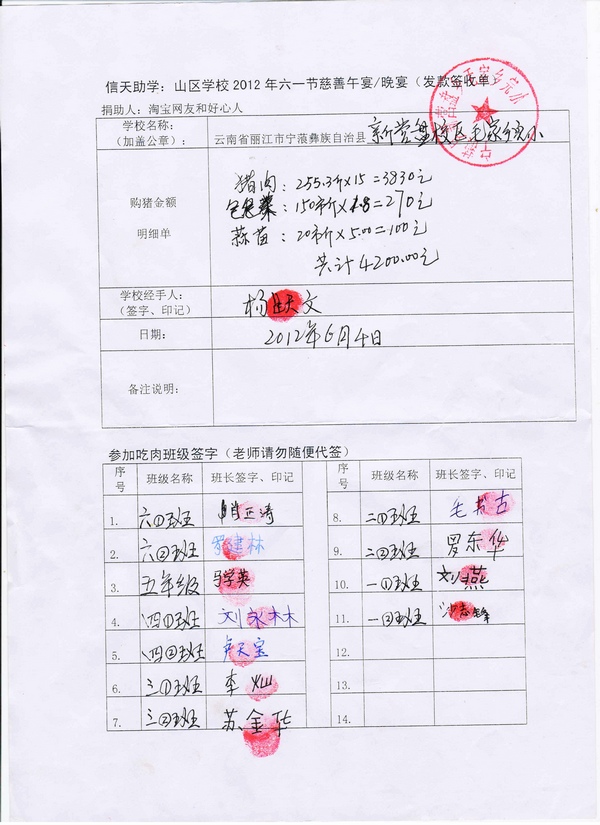 信天助学：山区学校2012年六一节慈善午宴/晚宴（发款签收单
捐助人：淘宝网友和好心人
学校名称：
（加盖公章）：
云南省丽江市宁蒗彝族自治县 新营盘校区毛家乡完小
购猪金额
明细单
猪肉：255.3斤×15=3830元
包包菜：150市斤×1.8=270元
蒜苗：20市斤×5.00=100元
共计4200.00元
学校经手人：
（签字、印记）
杨跃文
日期：
2012年6月4日
备注说明：
参加吃肉班级签字（老师请勿随便代签）
序号 班级名称 班长签字、印记 序号 班级名称 班长签字、印记
1. 六①班 肖正涛 8. 二①班 毛书古
2. 六②班 罗建林 9. 二②班 罗东华
3. 五年级 马学英 10. 一①班 刘燕
4. 四①班 刘永林 11. 一②班 沙志锋
5. 四②班 卢天宝 12.
6. 三①班 李灿 13.
7. 三②班 苏金华 14.